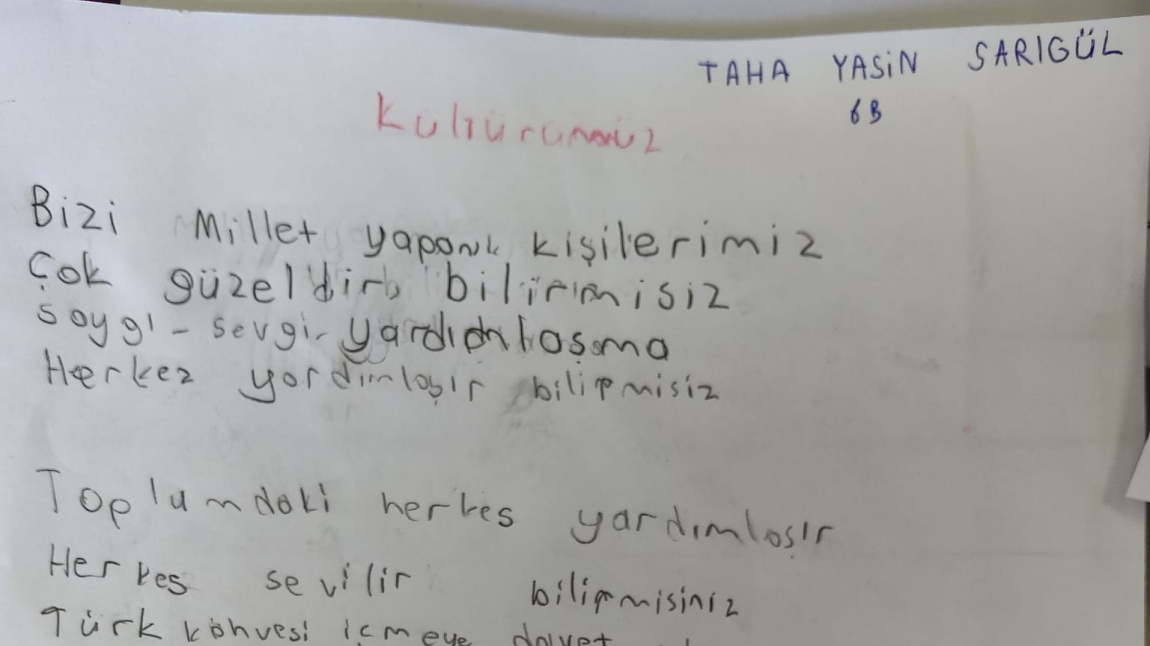 TAHA YASİN SARIGÜL
6B
Kültürümüz
Bizi Millet yapan kişilerimiz
Çok güzeldir bilirmisiz
Saygı - sevgi - yardımlaşma
Herkez yardımlaşır bilirmisiz
Toplumdaki herkes yardımlaşır
Herkes sevilir bilirmisiniz
Türk kahvesi içmeye davet